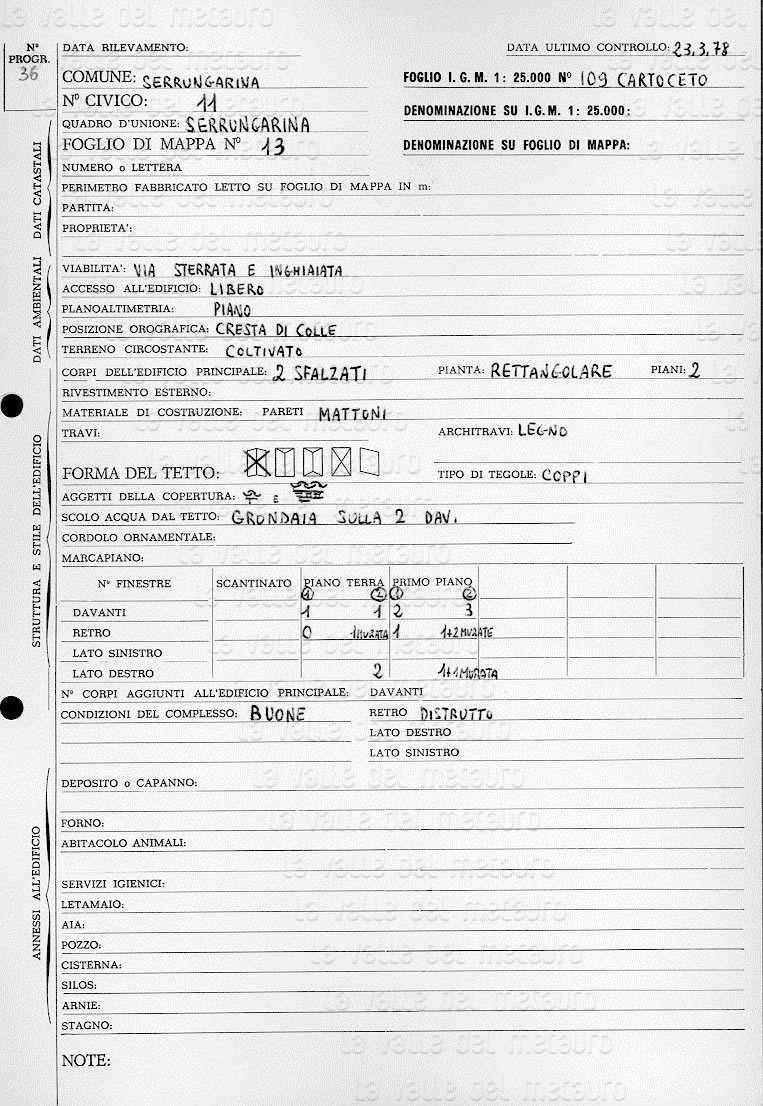 la valle del metauro
N° PROGR. 36
DATA RILEVAMENTO:
DATA ULTIMO CONTROLLO: 23.3.78
COMUNE: SERRUNGARINA
FOGLIO I.G.M. 1: 25.000 N° 109 CARTOCETO
N° CIVICO: 11
DENOMINAZIONE SU I.G.M. 1: 25.000:
QUADRO D'UNIONE: SERRUNGARINA
FOGLIO DI MAPPA N° 13
DENOMINAZIONE SU FOGLIO DI MAPPA:
DATI CATASTALI
NUMERO o LETTERA
PERIMETRO FABBRICATO LETTO SU FOGLIO DI MAPPA IN m:
PARTITA:
PROPRIETA':
DATI AMBIENTALI
VIABILITA': VIA STERRATA E INGHIAIATA
ACCESSO ALL'EDIFICIO: LIBERO
PLANOALTIMETRIA: PIANO
POSIZIONE OROGRAFICA: CRESTA DI COLLE
TERRENO CIRCOSTANTE: COLTIVATO
STRUTTURA E STILE DELL'EDIFICIO
CORPI DELL'EDIFICIO PRINCIPALE: 2 SFALZATI PIANTA: RETTANGOLARE PIANI: 2
RIVESTIMENTO ESTERNO:
MATERIALE DI COSTRUZIONE: PARETI MATTONI
TRAVI:
ARCHITRAVI: LEGNO
FORMA DEL TETTO:
TIPO DI TEGOLE: COPPI
AGGETTI DELLA COPERTURA: E
SCOLO ACQUA DAL TETTO: GRONDAIA SULLA 2 DAV.
CORDOLO ORNAMENTALE:
MARCAPIANO:
N° FINESTRE SCANTINATO PIANO TERRA PRIMO PIANO
1 2 1 2
DAVANTI 1 1 2 3
RETRO 0 1 MURATA 1 1+2 MURATE
LATO SINISTRO
LATO DESTRO 2 1+1 MURATA
N° CORPI AGGIUNTI ALL'EDIFICIO PRINCIPALE: DAVANTI
CONDIZIONI DEL COMPLESSO: BUONE RETRO DISTRUTTO
LATO DESTRO
LATO SINISTRO
ANNESSI ALL'EDIFICIO
DEPOSITO o CAPANNO:
FORNO:
ABITACOLO ANIMALI:
SERVIZI IGIENICI:
LETAMAIO:
AIA:
POZZO:
CISTERNA:
SILOS:
ARNIE:
STAGNO:
NOTE: